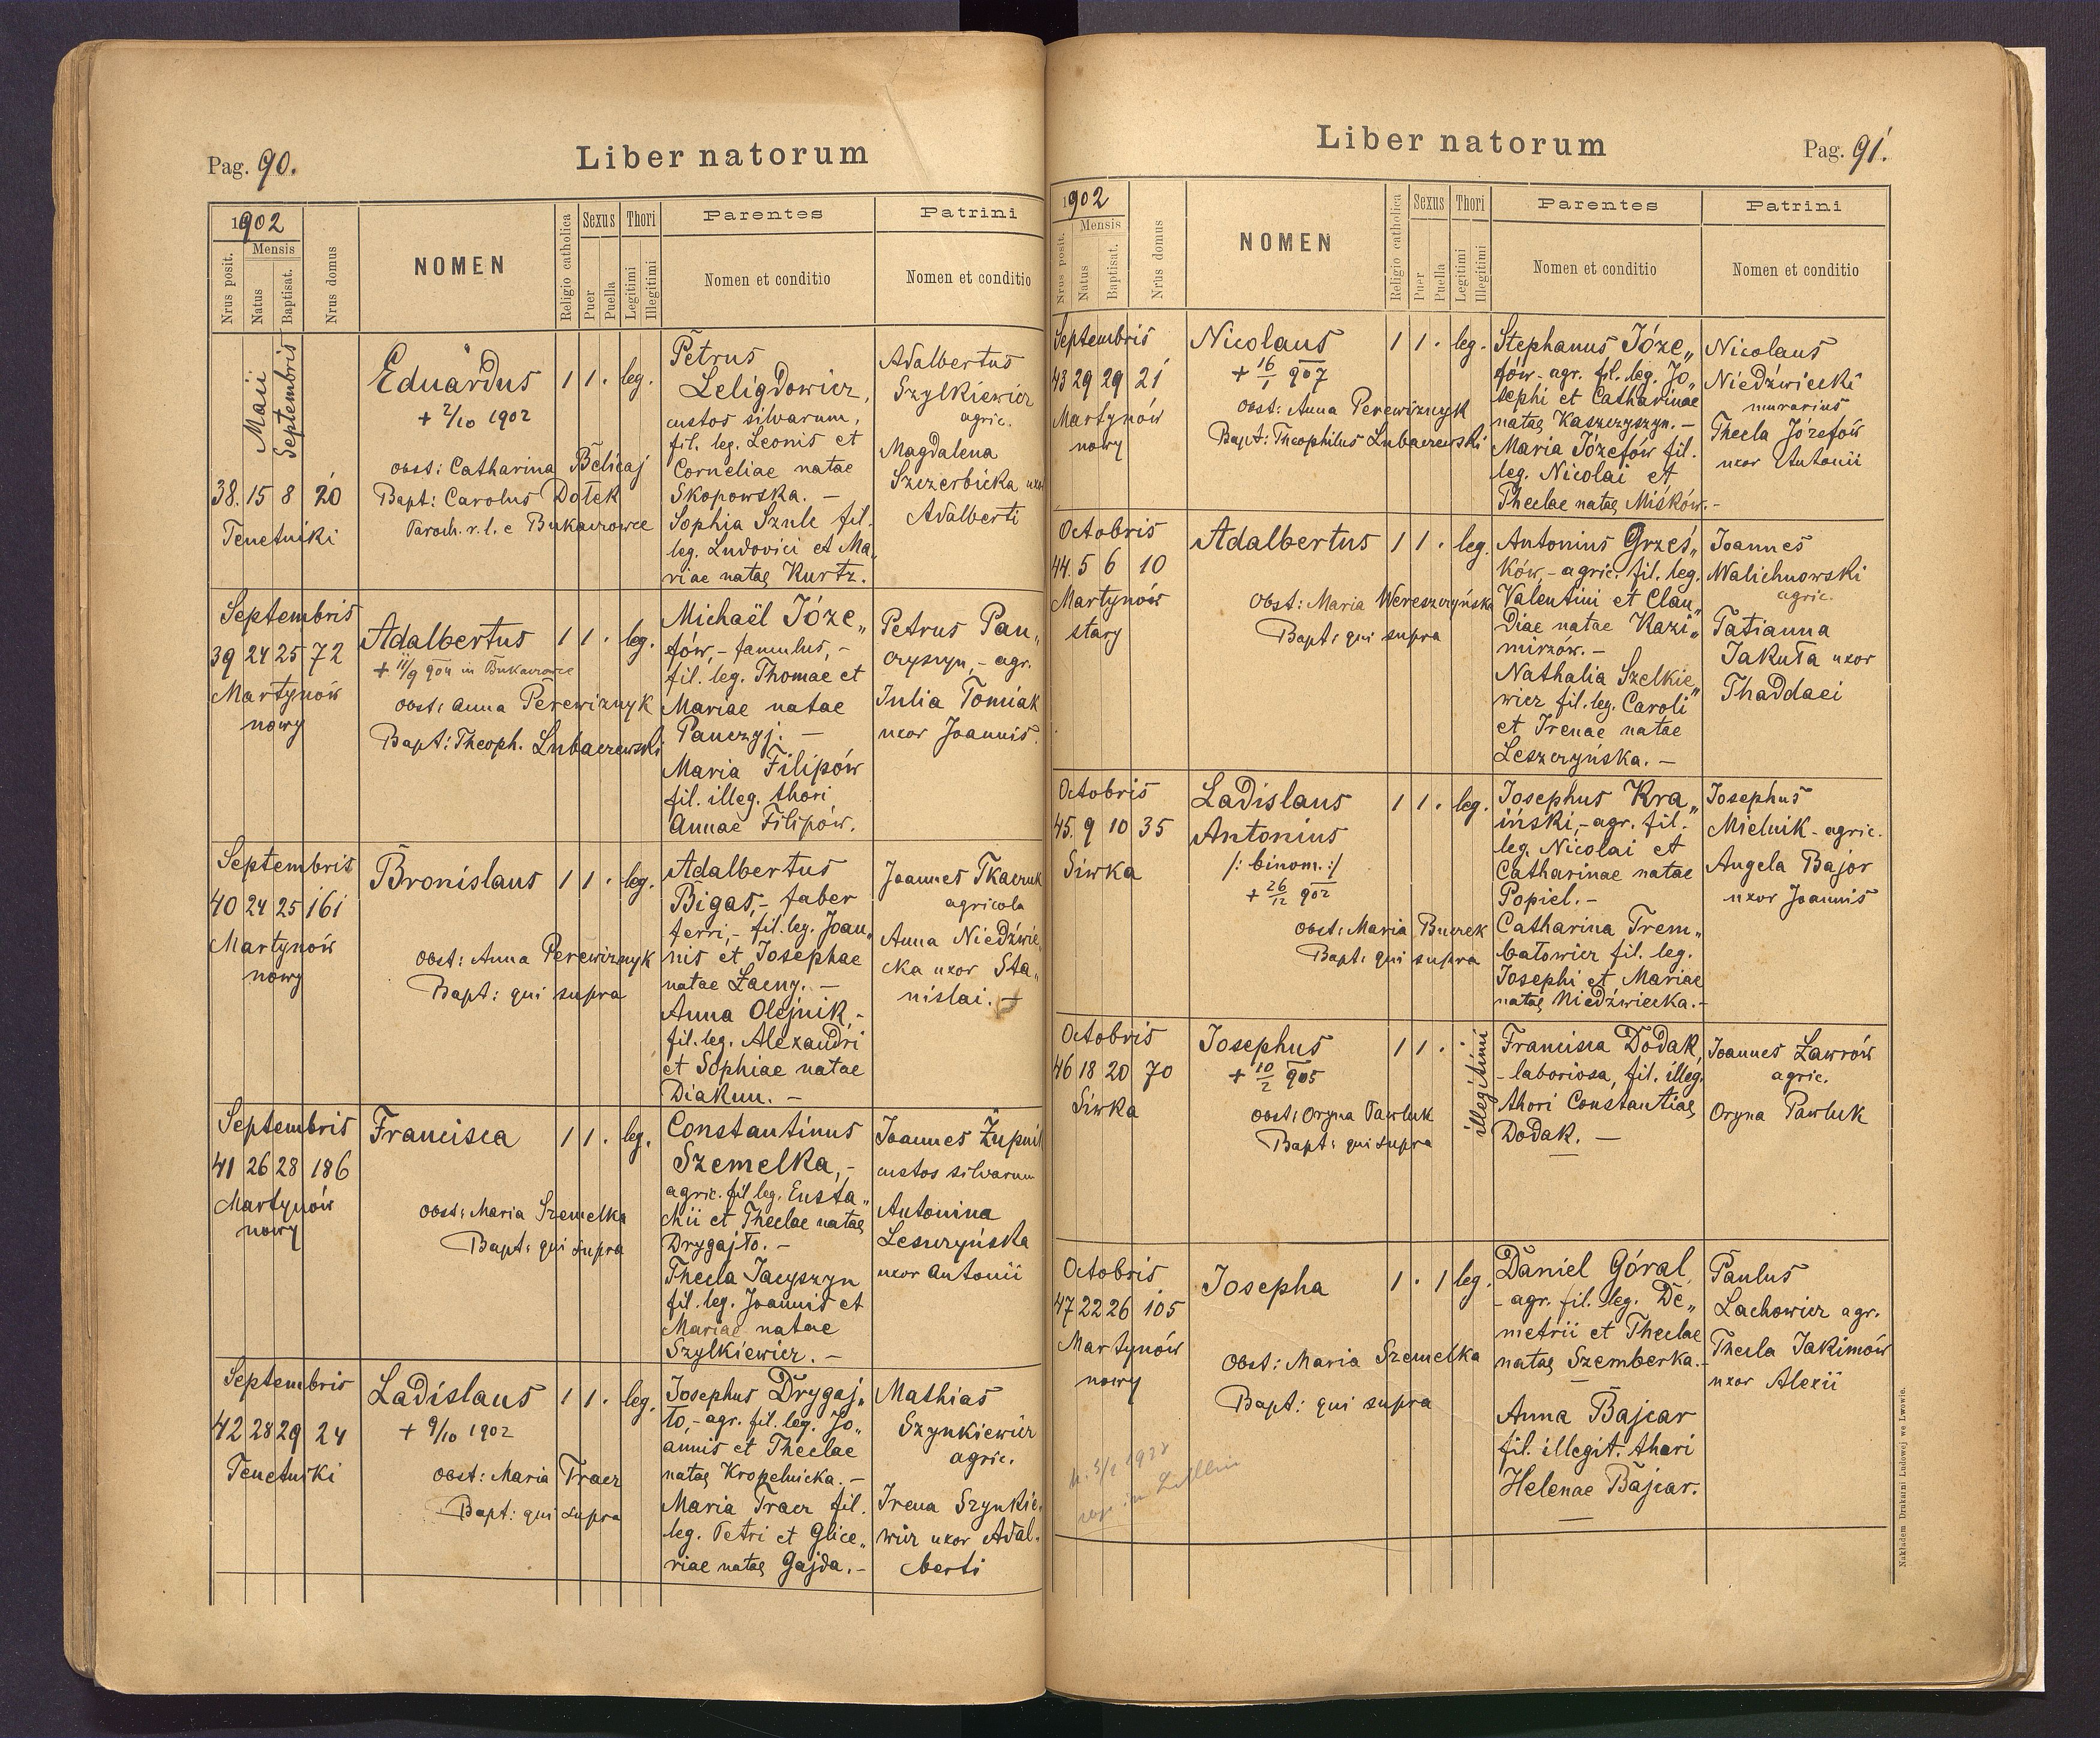 Pag. 90.
Liber natorum
1902
Mensis
Nrus posit.
Natus
Baptisat.
Nrus domus
NOMEN
Religio catholica
Sexus
Puer
Puella
Thori
Legitimi
Illegitimi
Parentes
Nomen et conditio
Patrini
Nomen et conditio
Maii
Septembris
38. 15 8 20
Tenetniki
Eduardus
+ 2/10 1902
obst: Catharina Belicaj
Bapt: Carolus Dołek
Paroch. r. l. e Bukaczowce
1 1 . leg.
Petrus
Leligdowicz,
custos silvarum,
fil. leg. Leonis et
Corneliae natae
Skopowska. —
Sophia Szule fil.
leg. Ludovici et Ma„
riae natae Kurtz.
Adalbertus
Szylkiewicz
agric.
Magdalena
Szczerbicka uxor
Adalberti
Septembris
39 24 25 72
Martynów
nowy
Adalbertus
+ 11/9 904 in Bukaczowce
obst: Anna Perewiznyk
Bapt: Theoph. Lubaczewski
1 1 . leg.
Michaël Józe„
fów, - famulus, -
fil. leg. Thomae et
Mariae natae
Panczyj. —
Maria Filipów
fil. illeg. thori
Annae Filipów.
Petrus Pan„
czyszyn, - agr.
Julia Tomiak
uxor Joannis.
Septembris
40 24 25 161
Martynów
nowy
Bronislaus
obst: Anna Perewiznyk
Bapt: qui supra
1 1 . leg.
Adalbertus
Bigas, - faber
ferri, - fil. leg. Joan„
nis et Josephae
natae Łacny. —
Anna Olejnik, -
fil. leg. Alexandri
et Sophiae natae
Diakun. —
Joannes Tkaczuk
agricola
Anna Niedźwie„
cka uxor Sta„
nislai. —
Septembris
41 26 28 186
Martynów
nowy
Francisca
obst: Maria Szemelka
Bapt: qui supra
1 1 . leg.
Constantinus
Szemelka, -
agric. fil leg. Eusta„
chii et Theclae natae
Drygajło. —
Thecla Jacyszyn
fil. leg. Joannis et
Mariae natae
Szylkiewicz. —
Joannes Żupnik
custos silvarum
Antonina
Leszczyńska
uxor Antonii
Septembris
42 28 29 24
Tenetniki
Ladislaus
+ 9/10 1902
obst: Maria Tracz
Bapt: qui supra
1 1 . leg.
Josephus Drygaj„
ło, - agr. fil. leg. Jo„
annis et Theclae
natae Kropelnicka. —
Maria Tracz fil.
leg. Petri et Glice„
riae natae Gajda. —
Mathias
Szynkiewicz
agric.
Irena Szynkie„
wicz uxor Adal„
berti
Liber natorum
Pag. 91.
1902
Mensis
Nrus posit.
Natus
Baptisat.
Nrus domus
NOMEN
Religio catholica
Sexus
Puer
Puella
Thori
Legitimi
Illegitimi
Parentes
Nomen et conditio
Patrini
Nomen et conditio
Septembris
43 29 29 21
Martynów
nowy
Nicolaus
+ 16/1 907
obst: Anna Perewiznyk
Bapt: Theophilus Lubaczewski
1 1 . leg.
Stephanus Józe„
fów - agr. fil. leg. Jo„
sephi et Catharinae
natae Kaszczyszyn. —
Maria Józefów fil.
leg. Nicolai et
Theclae natae Miśków. -
Nicolaus
Niedźwiecki
murarius
Thecla Józefów
uxor Antonii
Octobris
44. 5 6 10
Martynów
stary
Adalbertus
Obst: Maria Wereszczyńska
Bapt: qui supra
1 1 . leg.
Antonius Grześ„
ków, - agric. fil. leg.
Valentini et Clau„
diae natae Kazi„
mirzów. —
Nathalia Szelkie„
wicz fil. leg. Caroli
et Irenae natae
Leszczyńska. —
Joannes
Malichnowski
agric.
Tatianna
Jakuta uxor
Thaddaei
Octobris
45. 9 10 35
Siwka
Ladislaus
Antonius
/: binom. :/
+ 26/12 902
obst: Maria Burek
Bapt: qui supra
1 1 . leg.
Josephus Kra„
iński, - agr. fil.
leg. Nicolai et
Catharinae natae
Popiel. -
Catharina Trem„
batowicz fil. leg.
Josephi et Mariae
natae Niedźwiecka. -
Josephus
Mielnik - agric.
Angela Bajor
uxor Joannis
Octobris
46 18 20 70
Siwka
Josephus
+ 10/2 905
obst: Oryna Pawluk
Bapt: qui supra
1 1 . .
illegitimi
Francisca Dodak,
- laboriosa, fil. illeg.
thori Constantiae
Dodak. —
Joannes Ławrów
agric.
Oryna Pawluk
Octobris
47 22 26 105
Martynów
nowy
Josepha
Obst: Maria Szemelka
Bapt: qui supra
1 . 1 leg.
Daniel Góral,
- agr. fil. leg. De„
metrii et Theclae
natae Szemberka. -
Anna Bajcar
fil. illegit. thori
Helenae Bajcar.
Paulus
Lachowicz agr.
Thecla Jakimów
uxor Alexii
Nakładem Drukarni Ludowej we Lwowie.